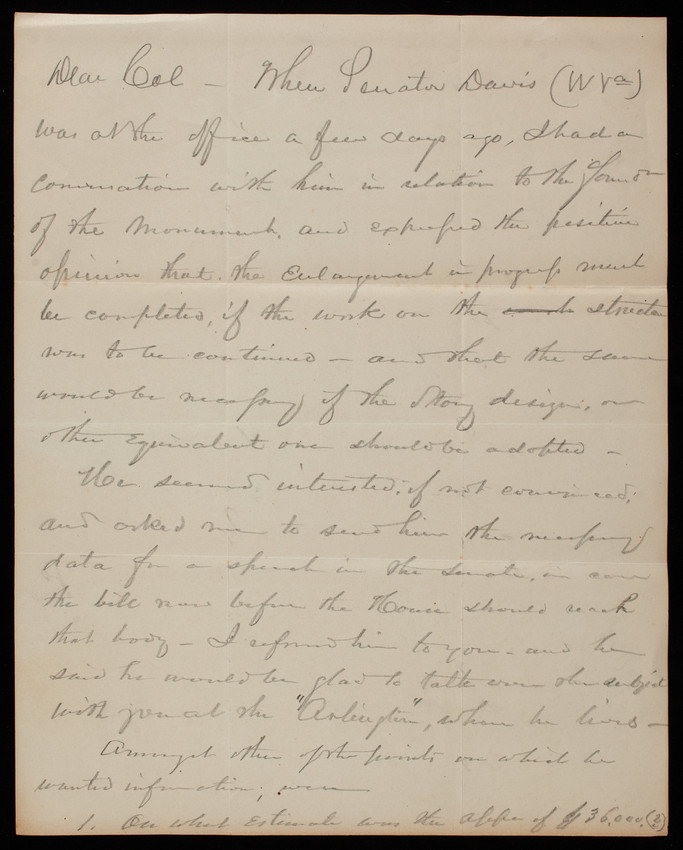 Dear Col — When Senator Davis (W Va)
was at the office a few days ago, I had a
conversation with him in relation to the Foundn
of the Monument, and expressed the positive
opinion that the Enlargement in progress must
be completed, if the work on the structure
was to be continued — and that the same
would be necessary if the Story design, or
other Equivalent one should be adopted —
He seemed interested, if not convinced,
and asked me to send him the necessary
data for a speech in the Senate, in case
the bill now before the House should reach
that body — I referred him to you — and he
said he would be glad to talk over the subject
with you at the "Arlington", where he lives —
Amongst other of the points on which he
wanted information, were
1. On what Estimate was the appn of $36,000. (?)